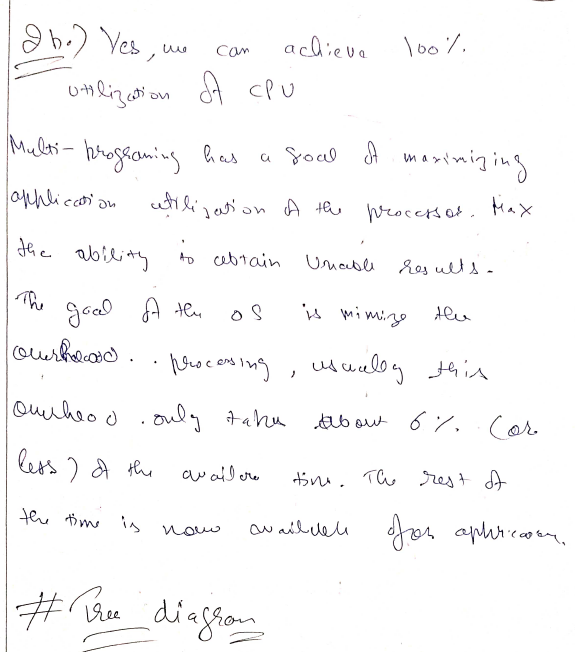 2b.) Yes, we can achieve 100%.
utilization of CPU
Multi-programing has a goal of maximizing
application utilization of the processor. Max
the ability to obtain Unable results.
The goal of the OS is mimize the
overhead.. processing, usually this
overhead.only takes about 6%. (or
less) of the availdre time. The rest of
the time is now for
# Tree diagram